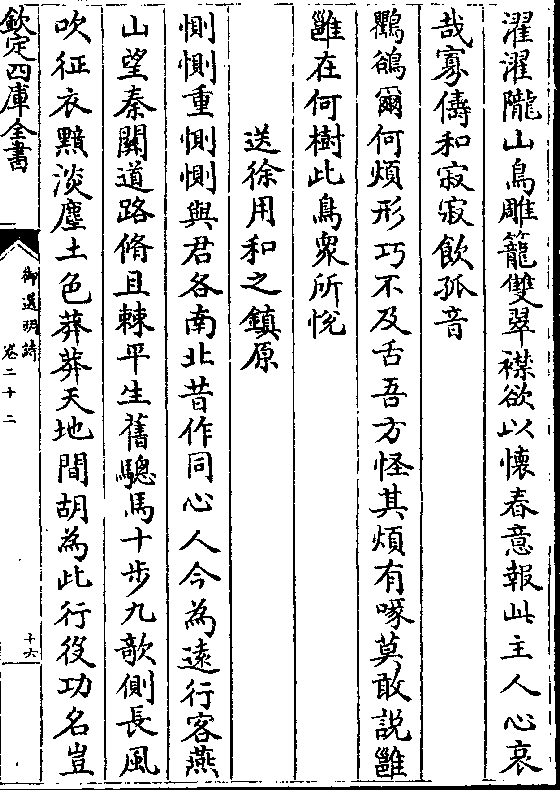 濯濯隴山鳥雕籠雙翠襟欲以懷春意報此主人心哀
哉寡儔和寂寂飲孤音
鸚鵒爾何煩形巧不及舌吾方怪其煩有喙莫敢説雖
雖在何樹此鳥衆所悅
送徐用和之鎮原
惻惻重惻惻與君各南北昔作同心人今為遠行客燕
山望秦關道路脩且棘平生舊驄馬十步九欹側長風
吹征衣黯淡塵土色莽莽天地間胡為此行役功名豈
欽定四庫全書
御選明詩
卷二十二
十六